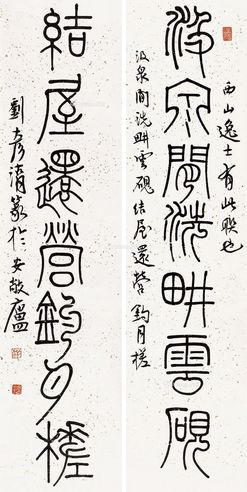 汲泉閒洗畊雲硯
西山逸士有此聯也
汲泉閒洗畊雲硯結屋還營釣月槎
結屋還營釣月槎
劉彥湻篆於安敬廬